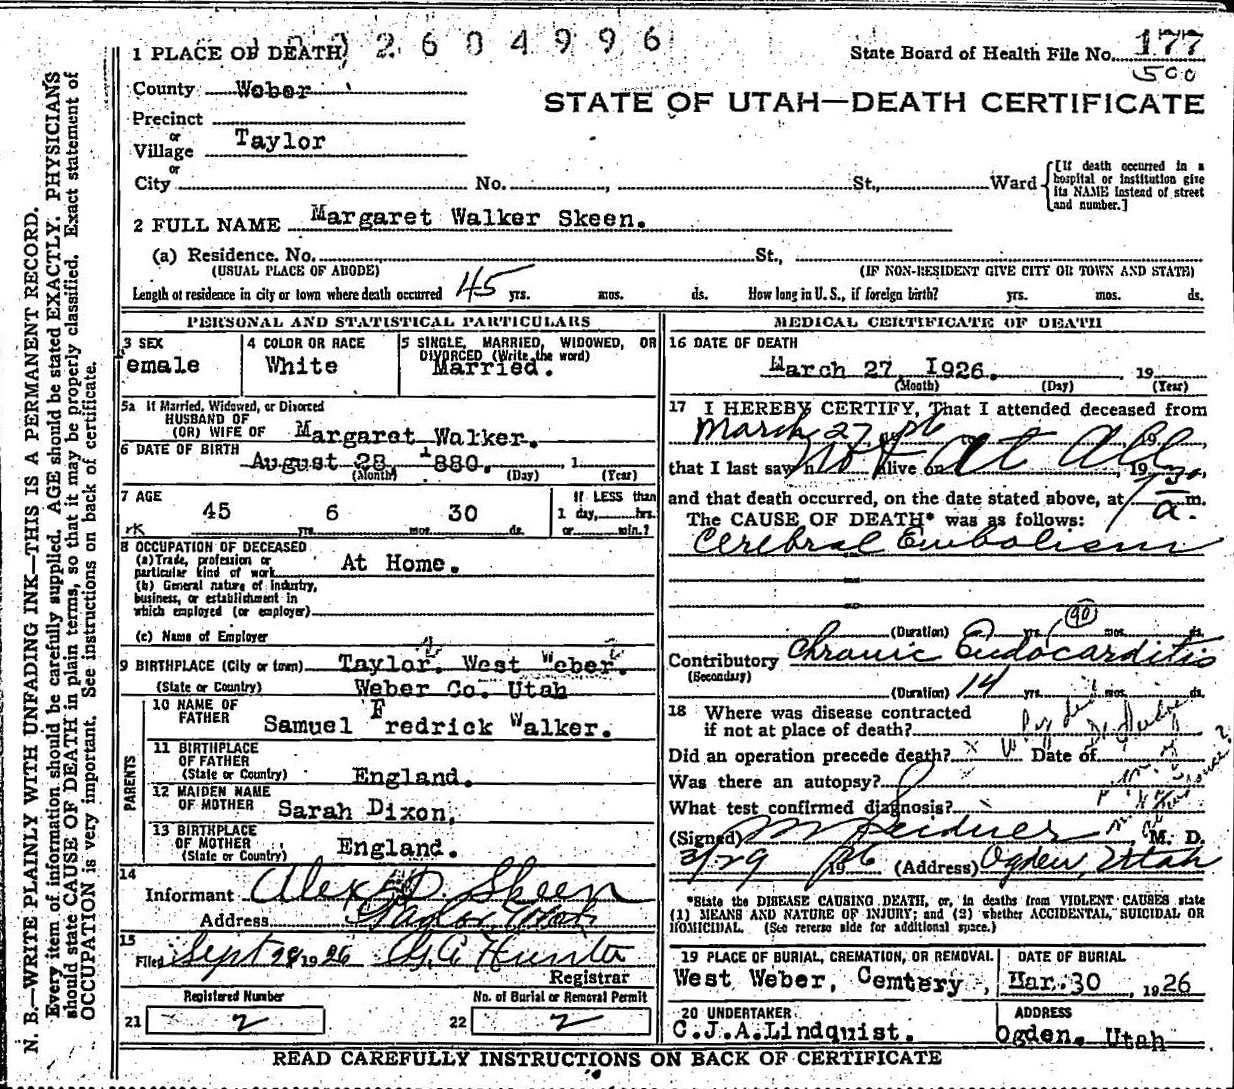 2604996
1 PLACE OF DEATH
State Board of Health File No. 177
500
County Weber
STATE OF UTAH—DEATH CERTIFICATE
Precinct
or
Village Taylor
or
City No. , St., Ward
[If death occurred in a hospital or institution give its NAME instead of street and number.]
2 FULL NAME Margaret Walker Skeen.
(a) Residence. No. St.,
(USUAL PLACE OF ABODE) (IF NON-RESIDENT GIVE CITY OR TOWN AND STATE)
Length of residence in city or town where death occurred 45 yrs. mos. ds. How long in U. S., if foreign birth? yrs. mos. ds.
PERSONAL AND STATISTICAL PARTICULARS
3 SEX 4 COLOR OR RACE 5 SINGLE, MARRIED, WIDOWED, OR
DIVORCED (Write the word)
emale White Married.
5a If Married, Widowed, or Divorced
HUSBAND OF
(OR) WIFE OF Margaret Walker.
6 DATE OF BIRTH August 28 1880. , 1
(Month) (Day) (Year)
7 AGE 45 6 30
yrs. mos. ds.
If LESS than
1 day, hrs.
or min.?
8 OCCUPATION OF DECEASED
(a) Trade, profession or
particular kind of work At Home.
(b) General nature of industry,
business, or establishment in
which employed (or employer)
(c) Name of Employer
9 BIRTHPLACE (City or town) Taylor. West Weber.
(State or Country) Weber Co. Utah
PARENTS
10 NAME OF
FATHER Samuel Fredrick Walker.
11 BIRTHPLACE
OF FATHER
(State or Country) England.
12 MAIDEN NAME
OF MOTHER Sarah Dixon,
13 BIRTHPLACE
OF MOTHER
(State or Country) England.
14
Informant Alex D. Skeen
Address Taylor, Utah
15
Filed Sept 28 1926 G.A. Hunter
Registrar
Registered Number No. of Burial or Removal Permit
21 2 22 2
MEDICAL CERTIFICATE OF DEATH
16 DATE OF DEATH
March 27, 1926. , 19
(Month) (Day) (Year)
17 I HEREBY CERTIFY, That I attended deceased from
March 27 26
that I last saw h Not alive on At All, 19
and that death occurred, on the date stated above, at 7 30 a. m.
The CAUSE OF DEATH* was as follows:
Cerebral Embolism
(Duration) yrs. 90 mos. ds.
Contributory Chronic Endocarditis
(Secondary)
(Duration) 14 yrs. mos. ds.
18 Where was disease contracted
if not at place of death?
Did an operation precede death? Date of
Was there an autopsy?
What test confirmed diagnosis?
(Signed) M. D.
3/29 1926 (Address) Ogden, Utah
*State the DISEASE CAUSING DEATH, or, in deaths from VIOLENT CAUSES state
(1) MEANS AND NATURE OF INJURY; and (2) whether ACCIDENTAL, SUICIDAL OR
HOMICIDAL. (See reverse side for additional space.)
19 PLACE OF BURIAL, CREMATION, OR REMOVAL DATE OF BURIAL
West Weber, Cemtery , Mar. 30 , 1926
20 UNDERTAKER ADDRESS
C.J.A.Lindquist. Ogden. Utah
READ CAREFULLY INSTRUCTIONS ON BACK OF CERTIFICATE
N. B.—WRITE PLAINLY WITH UNFADING INK—THIS IS A PERMANENT RECORD.
Every item of information should be carefully supplied. AGE should be stated EXACTLY. PHYSICIANS
should state CAUSE OF DEATH in plain terms, so that it may be properly classified. Exact statement of
OCCUPATION is very important. See instructions on back of certificate.